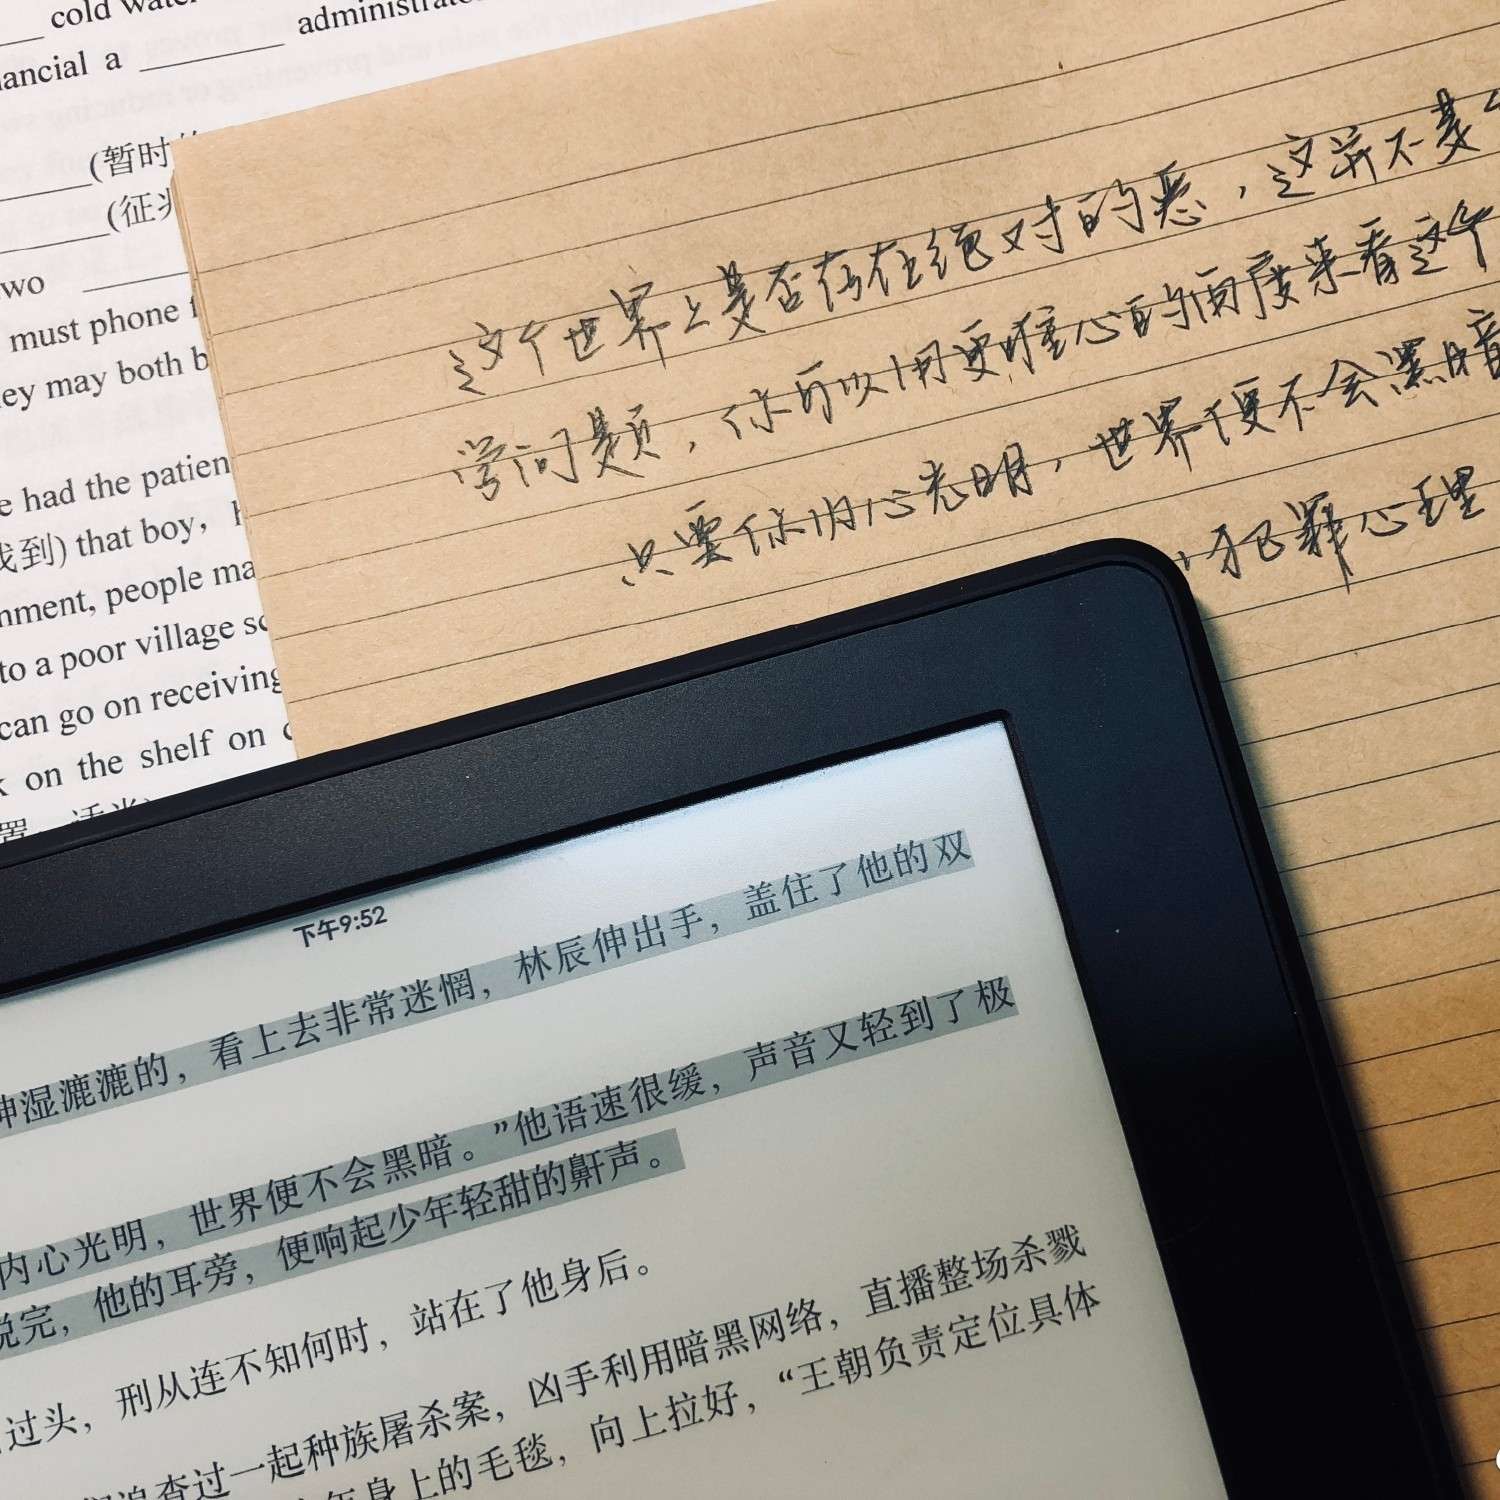 cold water
nancial a ________ administrato
________(暂时
________(征兆
two ________
must phone
ey may both b
e had the patien
找到) that boy,
nment, people ma
to a poor village sc
can go on receiving
k on the shelf on
置
这个世界上是否存在绝对的恶，这并不是
学问题，你可以用更唯心的角度来看这个
只要你内心光明，世界便不会黑暗
，犯罪心理
下午9:52
神湿漉漉的，看上去非常迷惘，林辰伸出手，盖住了他的双
内心光明，世界便不会黑暗。”他语速很缓，声音又轻到了极
说完，他的耳旁，便响起少年轻甜的鼾声。
过头，刑从连不知何时，站在了他身后。
追查过一起种族屠杀案，凶手利用暗黑网络，直播整场杀戮
年身上的毛毯，向上拉好，“王朝负责定位具体